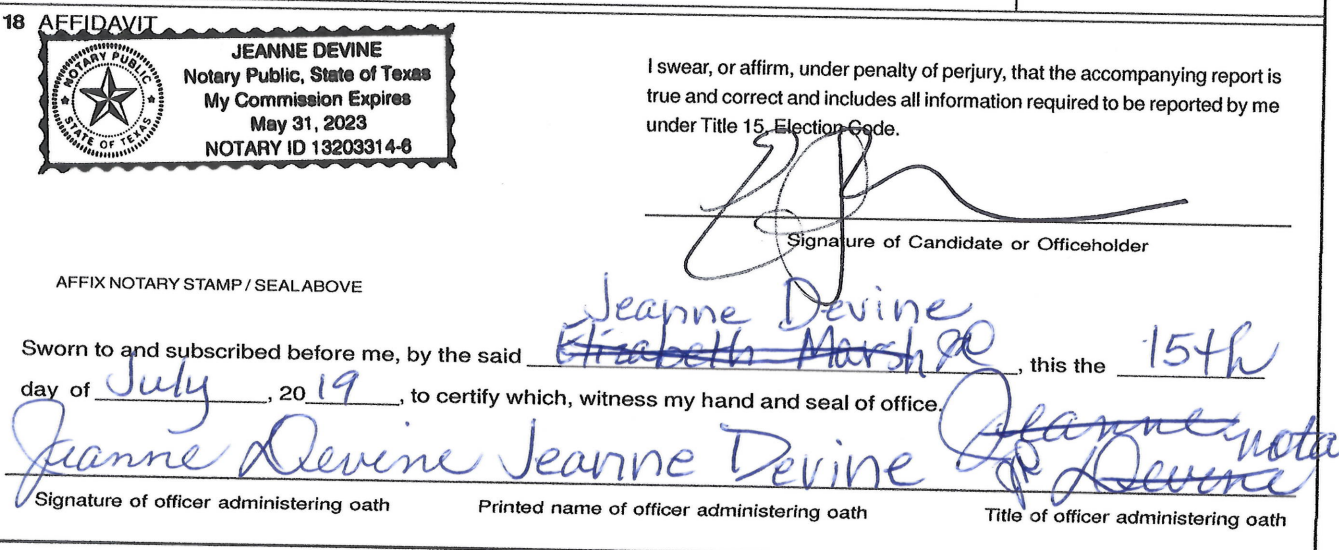 18 AFFIDAVIT
NOTARY PUBLIC
STATE OF TEXAS
JEANNE DEVINE
Notary Public, State of Texas
My Commission Expires
May 31, 2023
NOTARY ID 13203314-6
I swear, or affirm, under penalty of perjury, that the accompanying report is
true and correct and includes all information required to be reported by me
under Title 15, Election Code.
Signature of Candidate or Officeholder
AFFIX NOTARY STAMP / SEAL ABOVE
Jeanne Devine
Sworn to and subscribed before me, by the said Elizabeth Marsh, this the 15th
day of July, 2019, to certify which, witness my hand and seal of office.
Jeanne Devine Jeanne Devine Jeanne Devine nota
Signature of officer administering oath Printed name of officer administering oath Title of officer administering oath